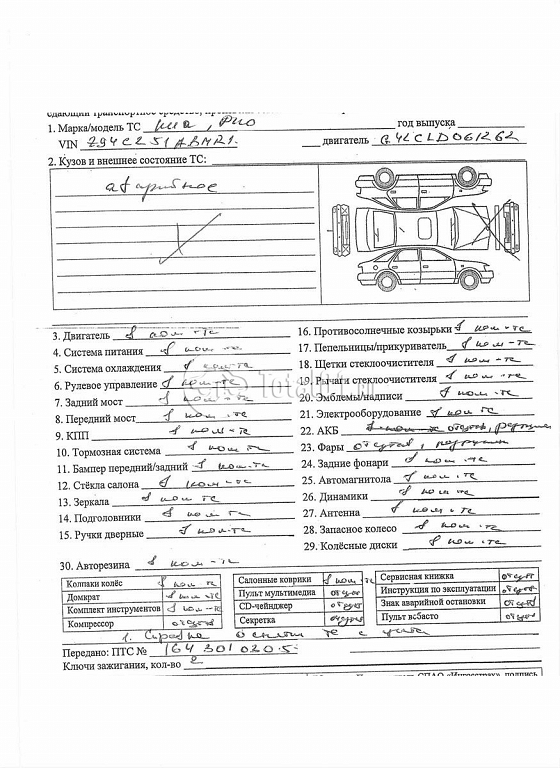 1. Марка/модель ТС киа, Рио год выпуска
VIN двигатель
2. Кузов и внешнее состояние ТС:
аварийное
3. Двигатель в ком-те
4. Система питания в ком-те
5. Система охлаждения в ком-те
6. Рулевое управление в ком-те
7. Задний мост в ком-те
8. Передний мост в ком-те
9. КПП в ком-те
10. Тормозная система в ком те
11. Бампер передний/задний в ком-те
12. Стёкла салона в ком-те
13. Зеркала в ком те
14. Подголовники в ком-те
15. Ручки дверные в ком-те
16. Противосолнечные козырьки в ком-те
17. Пепельницы/прикуриватель в ком-те
18. Щетки стеклоочистителя в ком-те
19. Рычаги стеклоочистителя в ком-те
20. Эмблемы/надписи в ком-те
21. Электрооборудование в ком те
22. АКБ
23. Фары
24. Задние фонари в ком-те
25. Автомагнитола в ком-те
26. Динамики в ком те
27. Антенна в ком-те
28. Запасное колесо в ком-те
29. Колёсные диски в ком-те
30. Авторезина в ком-те
Колпаки колёс в ком-те
Домкрат в ком-те
Комплект инструментов в ком-те
Компрессор отсутв
Салонные коврики в ком-те
Пульт мультимедиа отсутв
CD-чейнджер отсутв
Секретка отсутв
Сервисная книжка отсутв
Инструкция по эксплуатации отсутв
Знак аварийной остановки отсутв
Пульт вебасто отсутв
1. Справка о снятии тс с учета
Передано: ПТС № 164301020.5
Ключи зажигания, кол-во 2
СПАО «Ингосстрах», подпись
Total01.ru